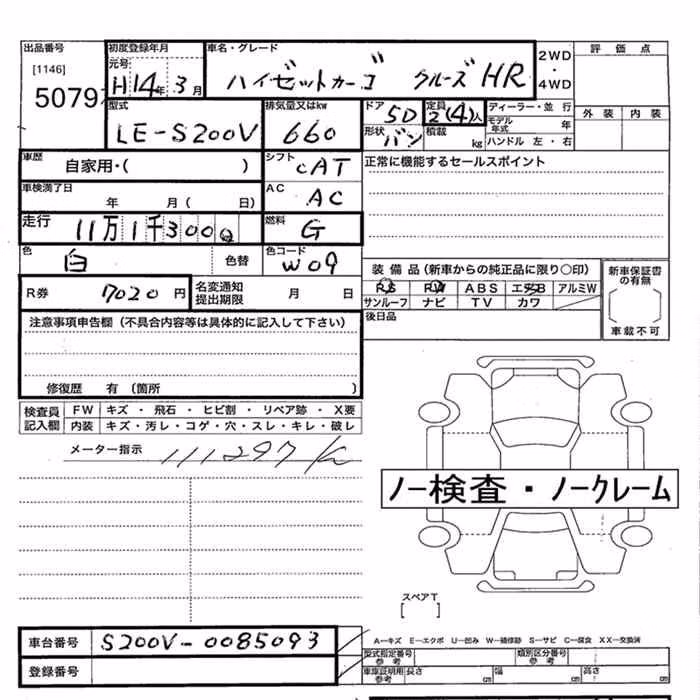 出品番号 初度登録年月 車名・グレード 評価点
[1146] 元号 2WD
5079 H14年3月 ハイゼットカーゴ クルーズ HR ・
4WD
型式 排気量又はkw ドア 5D 定員 2(4)人 ディーラー・並行 外装 内装
LE-S200V 660 形状 バン 積載 kg モデル年式 年
ハンドル 左・右
車歴 自家用・( ) シフト cAT 正常に機能するセールスポイント
車検満了日 年 月( 日) AC AC
走行 11万1千300 燃料 G
色 白 色替 色コード W09 装備品(新車からの純正品に限り○印) 新車保証書の有無
R券 7020円 名変通知提出期限 月 日 PS PW ABS エアB アルミW
サンルーフ ナビ TV カワ 車載不可
注意事項申告欄(不具合内容等は具体的に記入して下さい) 後日品
修復歴 有(箇所 )
検査員記入欄 FW キズ・飛石・ヒビ割・リペア跡・X要
内装 キズ・汚レ・コゲ・穴・スレ・キレ・破レ
メーター指示 111297 K
ノー検査・ノークレーム
スペアT
[ ]
車台番号 S200V-0085093 A―キズ E―エクボ U―凹み W―補修跡 S―サビ C―腐食 XX―交換済
型式指定番号 参考 類別区分番号 参考
登録番号 車庫証明用 参考 長さ cm 幅 cm 高さ cm